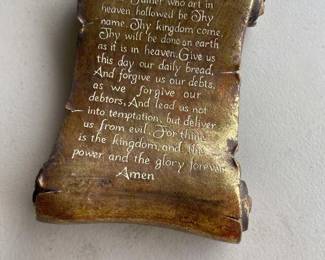 Father who art in
heaven hallowed be Thy
name. Thy kingdom come,
Thy will be done on earth
as it is in heaven. Give us
this day our daily bread,
And forgive us our debts,
as we forgive our
debtors, And lead us not
into temptation, but deliver
us from evil. For thine
is the kingdom, and the
power, and the glory forever
Amen